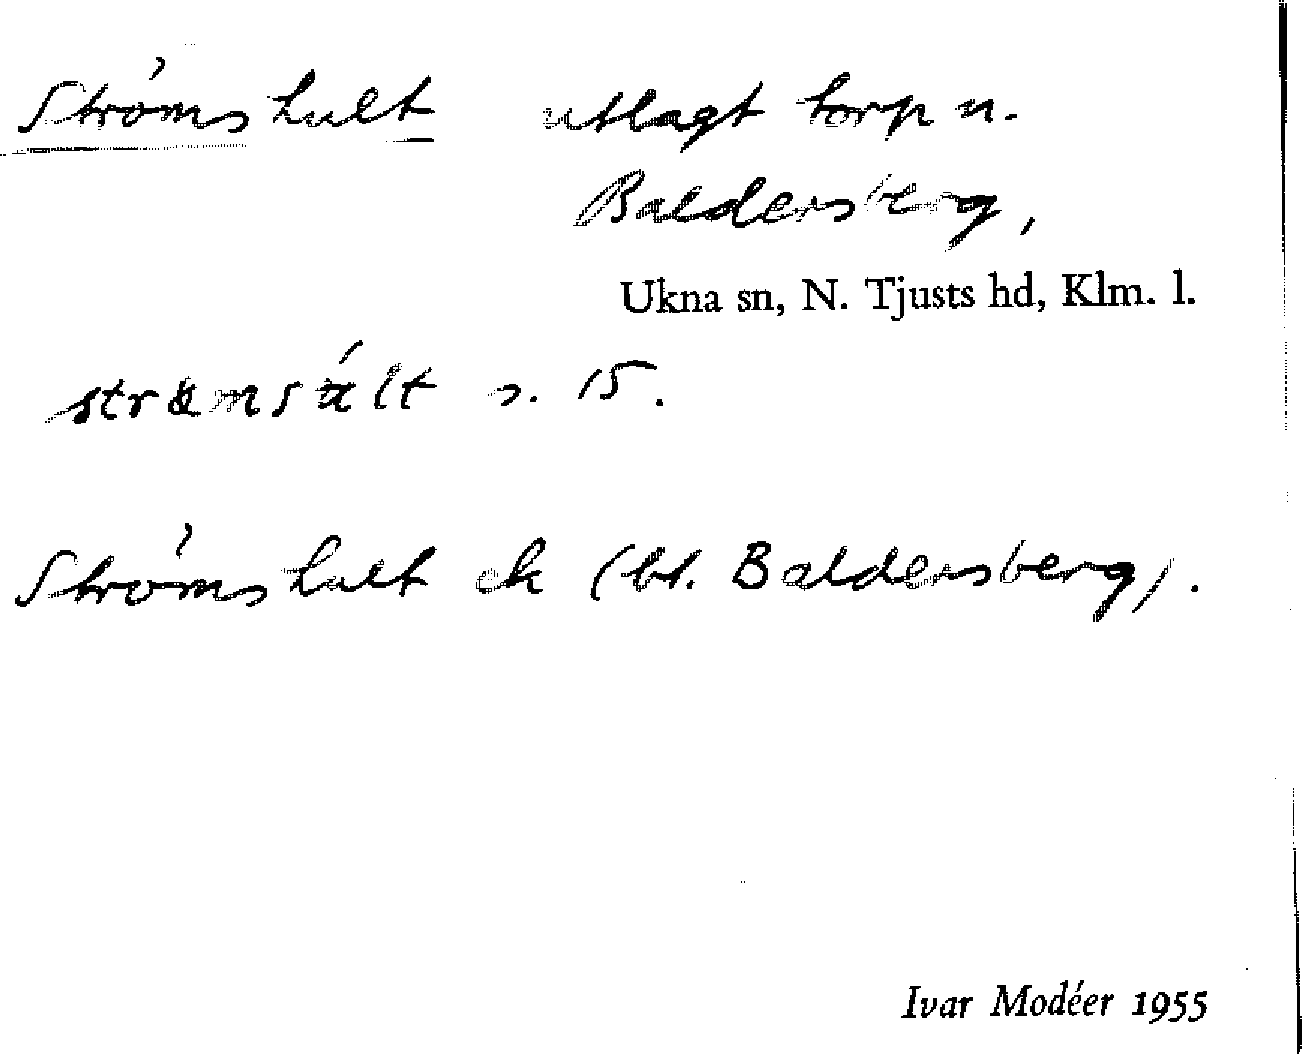 Strömshult utlagt torp u.
Baldersberg,
Ukna sn, N. Tjusts hd, Klm. l.
s. 15.
Strömshult ek (bl. Baldersberg).
Ivar Modéer 1955